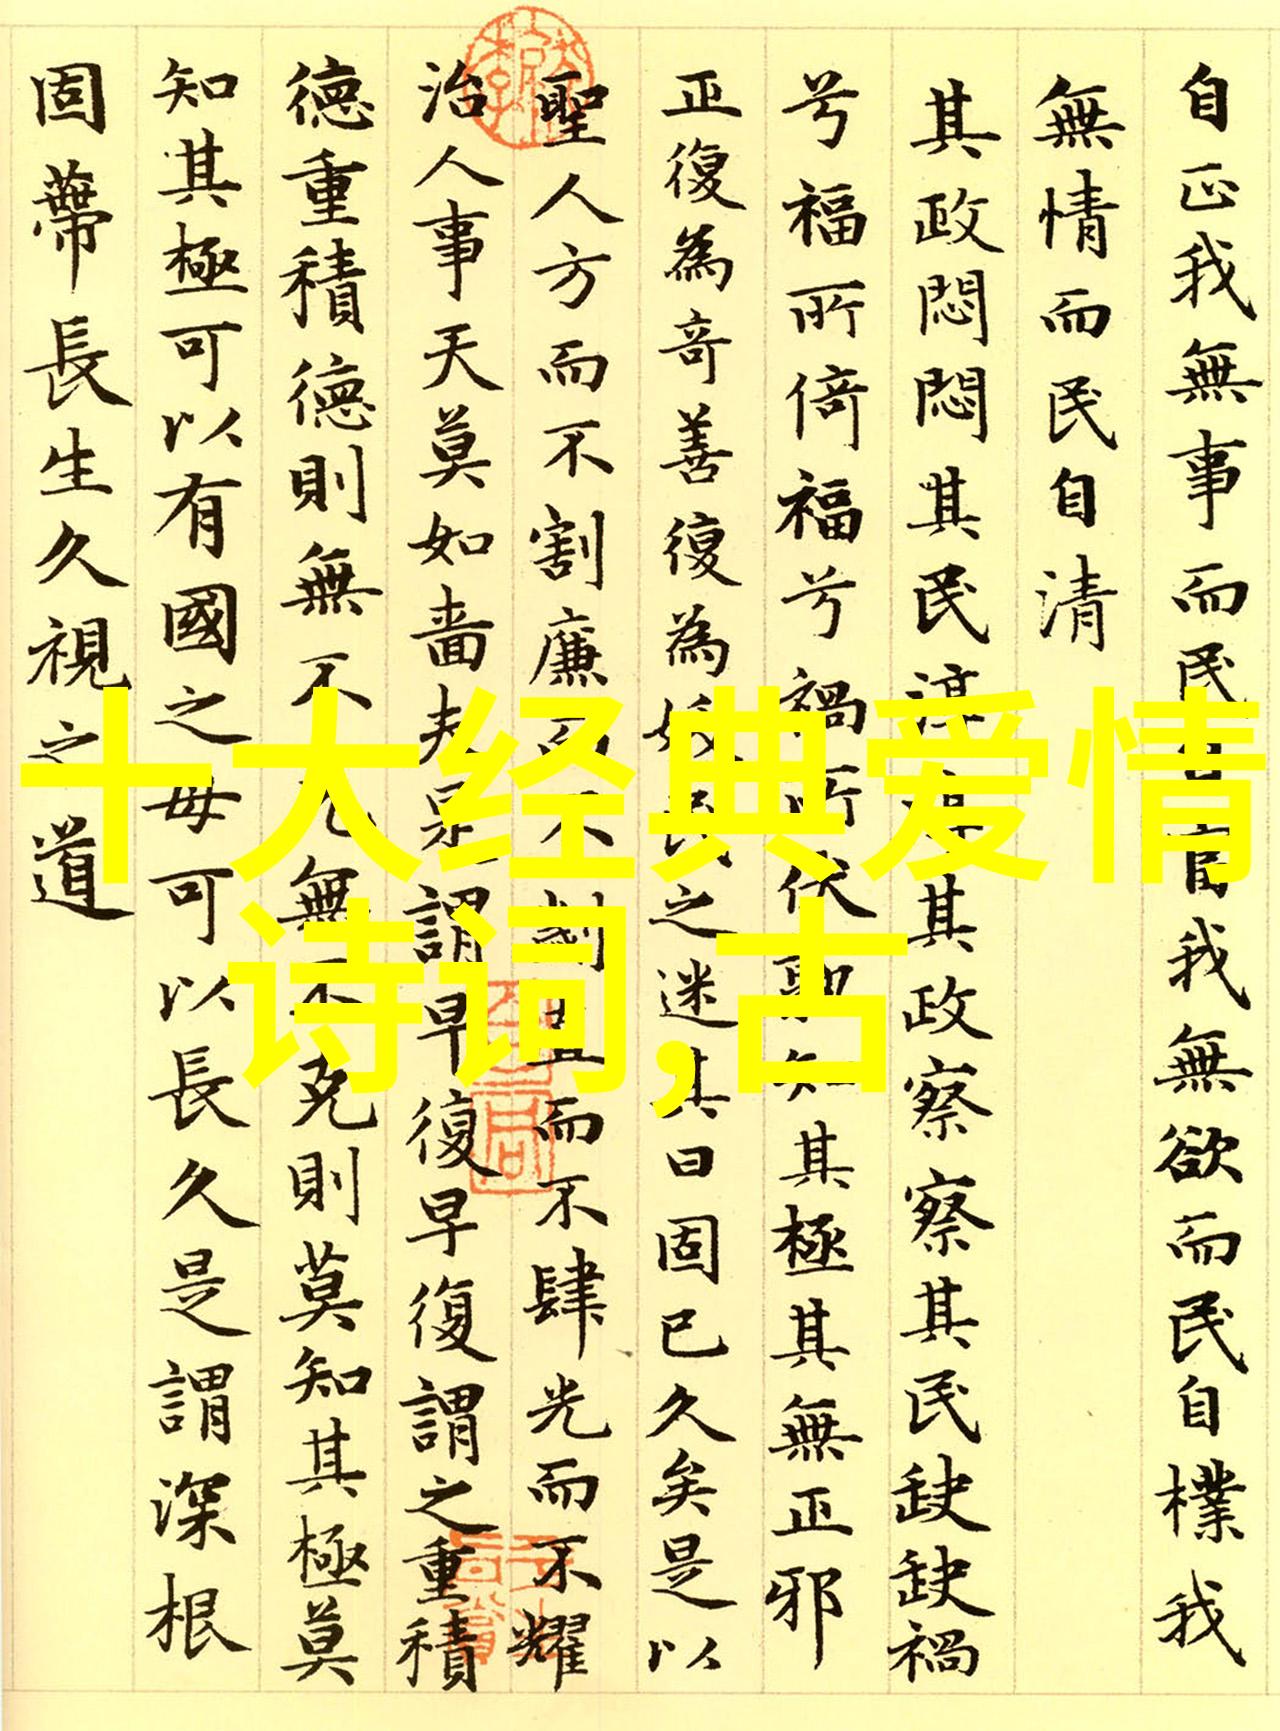 自正我無事而民自富我無欲而民自樸我
無情而民自清
其政悶悶其民淳淳其政察察其民缺缺禍
兮福所倚福兮禍所伏孰知其極其無正邪
正復為奇善復為妖民之迷其日固已久矣是以
聖人方而不割廉而不劌直而不肆光而不耀
治人事天莫如嗇夫是謂早復早復謂之重積
德重積德則無不克無不克則莫知其極莫
知其極可以有國之母可以長久是謂深根
固蔕長生久視之道
十大经典爱情
诗词,古